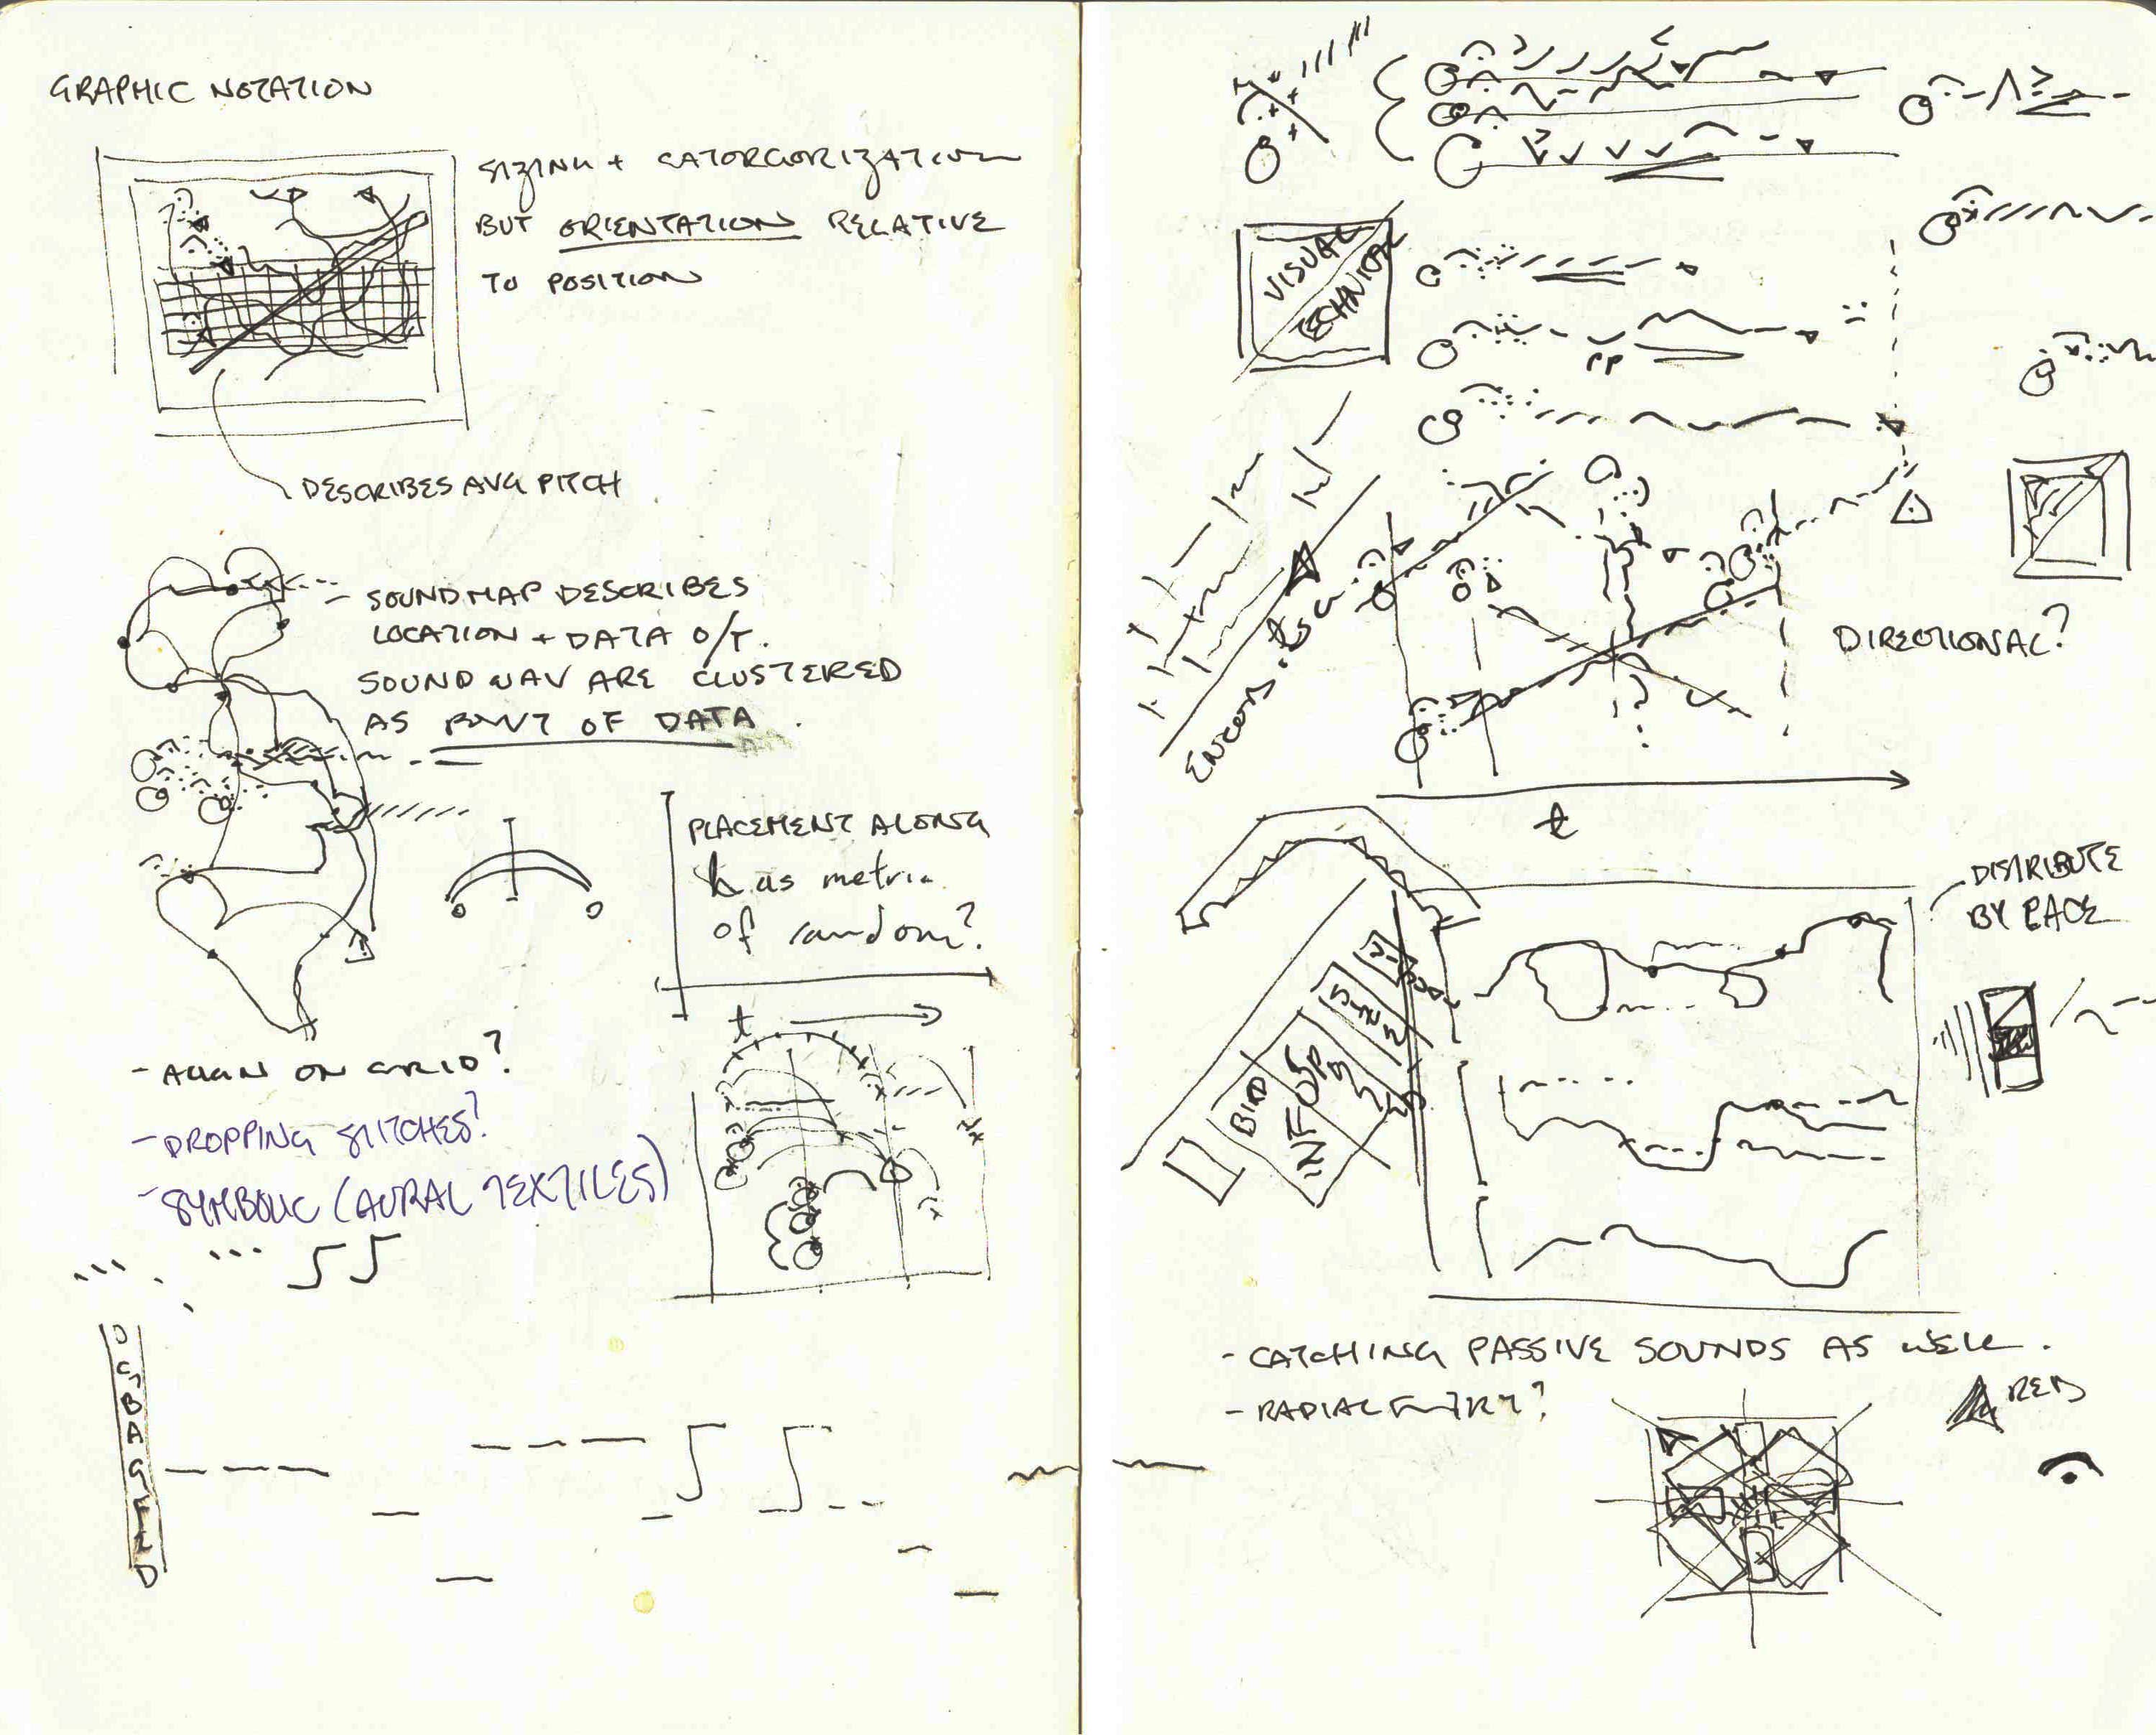 GRAPHIC NOTATION
SIZING + CATORGORIZATION
BUT ORIENTATION RELATIVE
TO POSITION
DESCRIBES AVG PITCH
SOUND MAP DESCRIBES
LOCATION + DATA O/T.
SOUND WAV ARE CLUSTERED
AS POINT OF DATA.
PLACEMENT ALONG
as metric
of random?
t
- ALIGN ON GRID?
- DROPPING STITCHES?
- SYMBOLIC (AURAL TEXTILES)
D
C
B
A
G
F
E
D
VISUAL
TECHNICAL
PP
DIRECTIONAL?
t
DISTRIBUTE
BY PACE
BIRD
INFO
- CATCHING PASSIVE SOUNDS AS WELL.
- RADIAL ENTRY?
RED